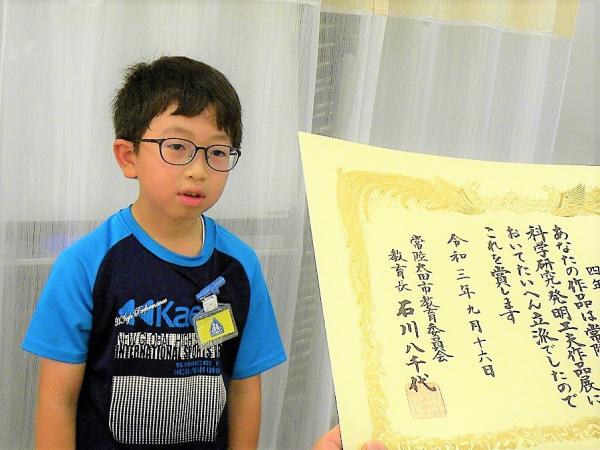 四年
あなたの作品は常陸
科学研究・発明工夫作品展に
おいてたいへん立派でしたので
これを賞します
令和三年九月十六日
常陸太田市教育委員会
教育長 石川八千代
Kae
NEW GLOBAL HIGH
INTERNATIONAL SPORTS
SINCE